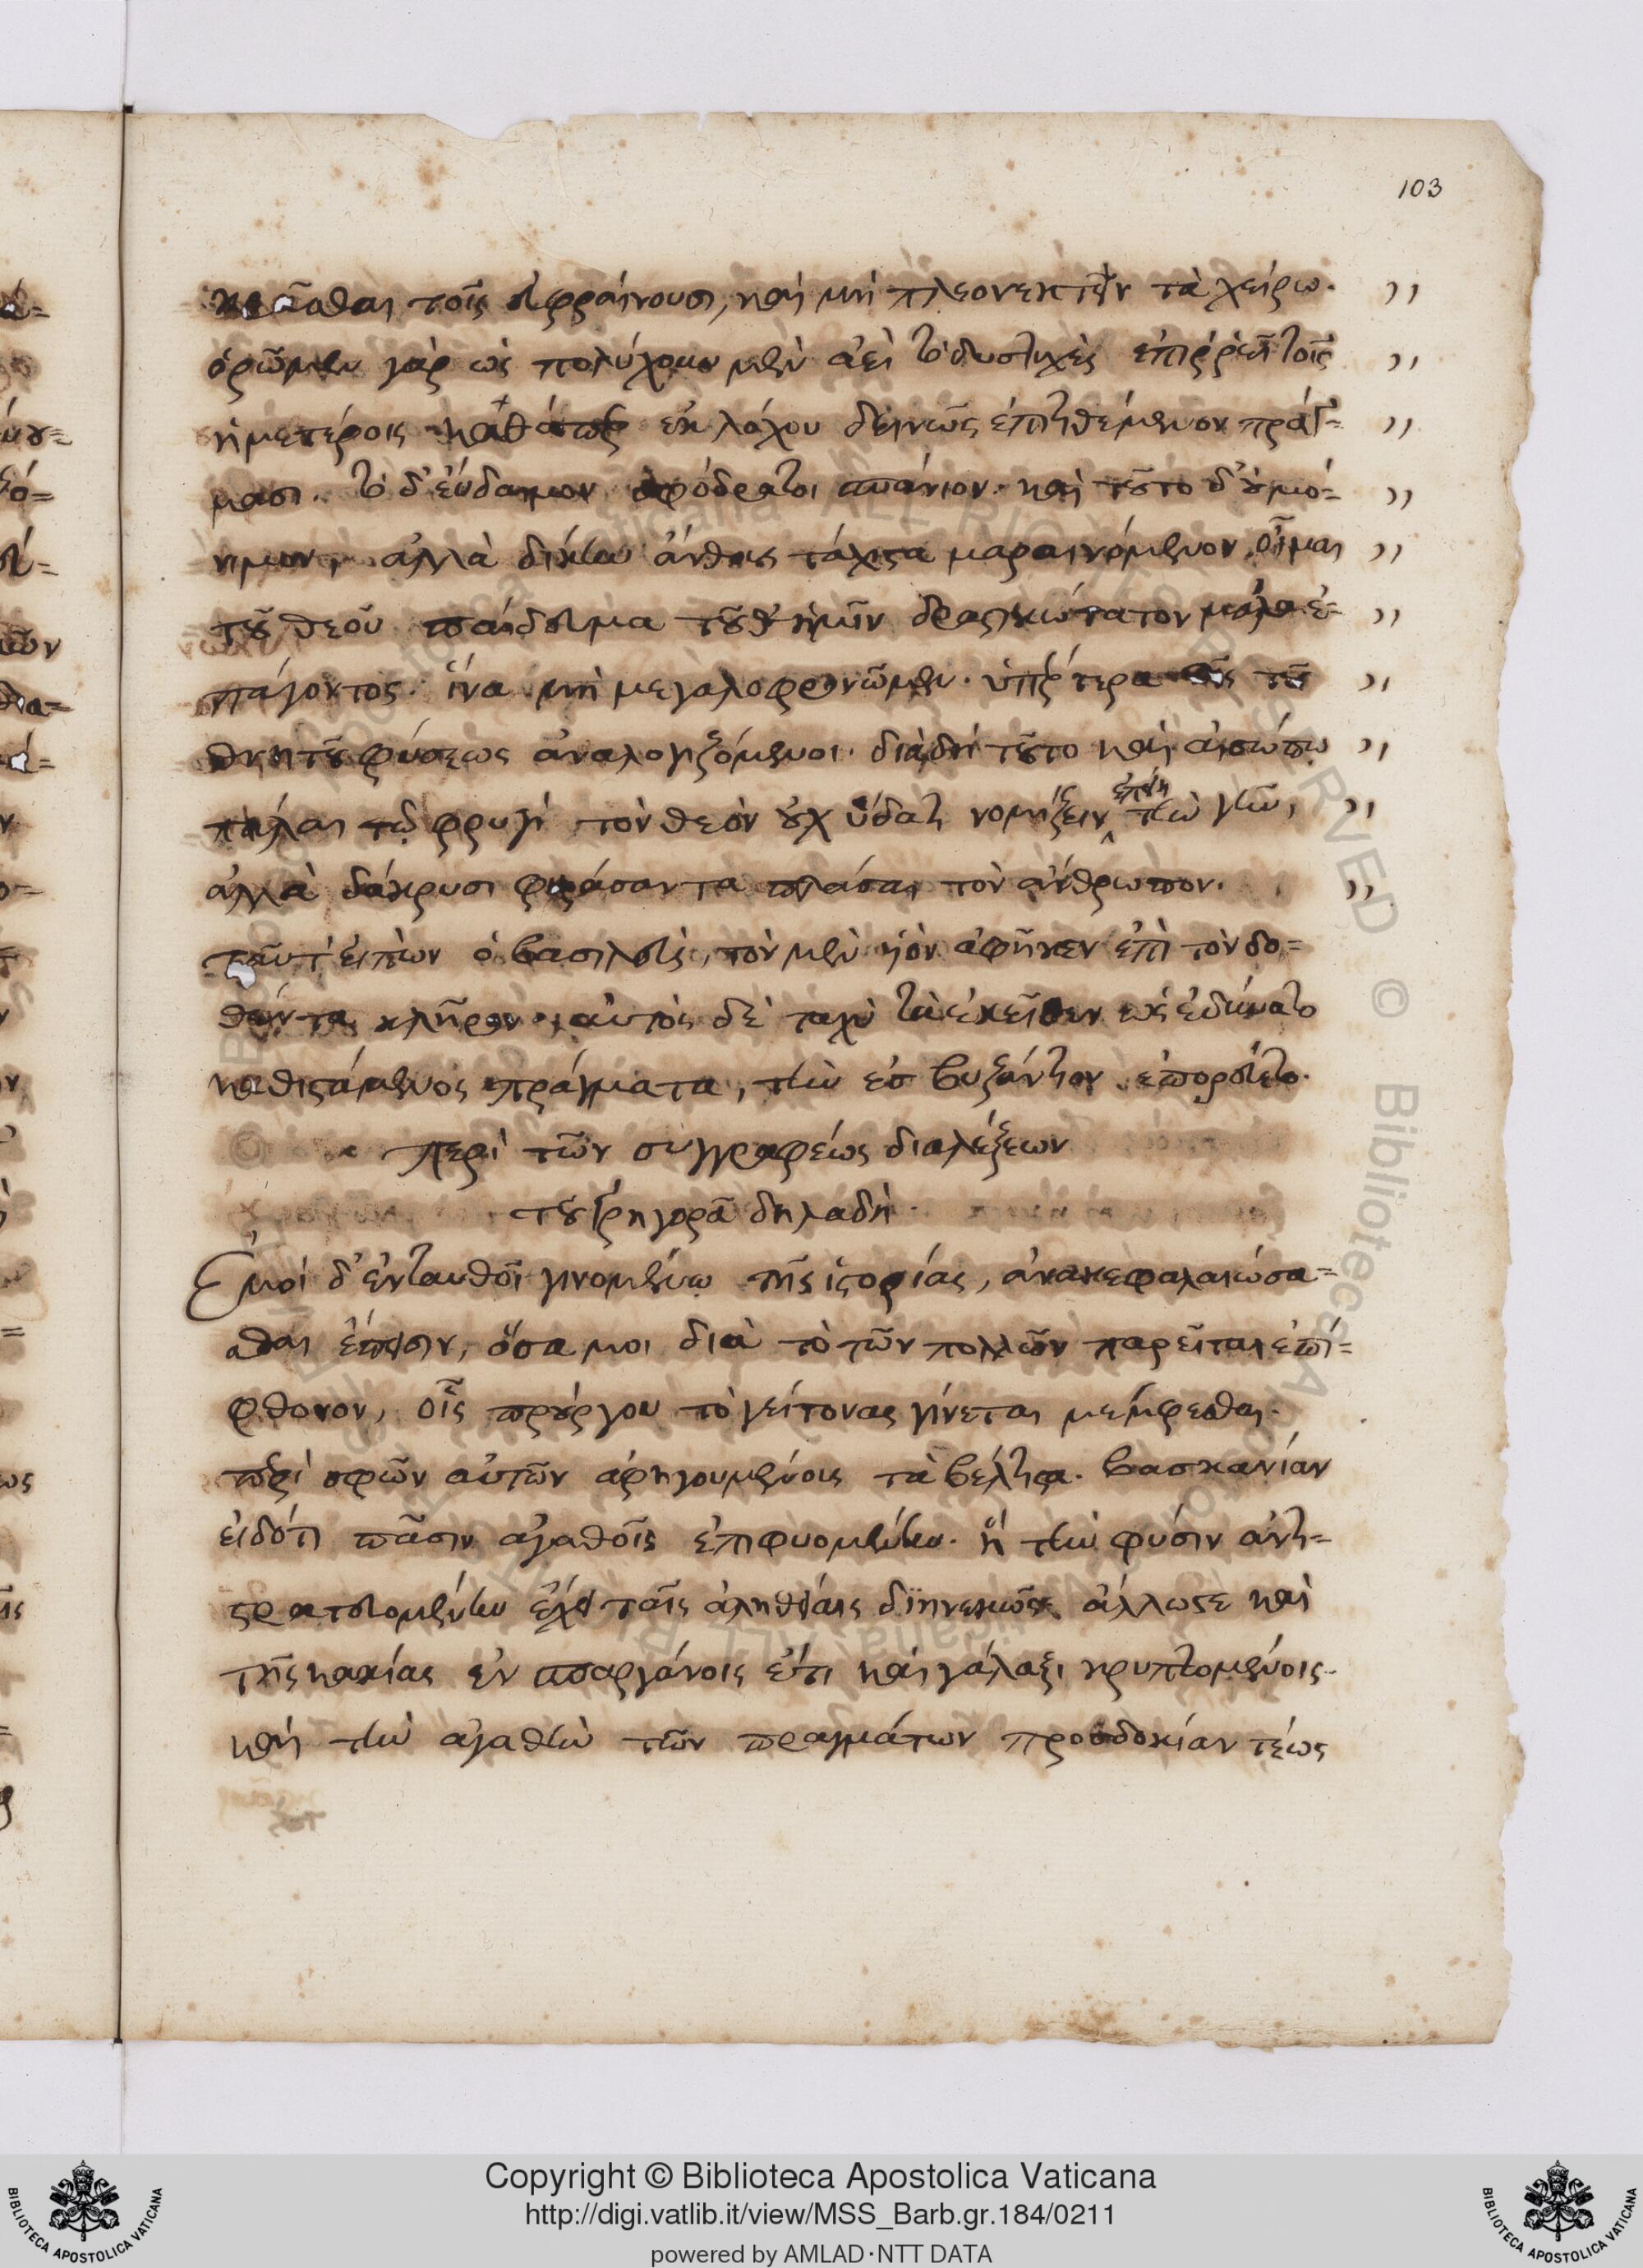 103
κρᾶσθαι τοῖς εὐφραίνουσι, καὶ μὴ πλεονεκτεῖν τὰ χείρω.
ὁρῶμεν γὰρ ὡς πολύχουν μὲν ἀεὶ τὸ δυστυχὲς ἐπιῤῥεῖ τοῖς
ἡμετέροις καθάπερ ἐκ λόχου δεινῶς ἐπιτιθέμενον πράγ=
μασι. τὸ δ' εὔδαιμον σφόδρα τοι σπάνιον. καὶ τοῦτο δ' οὐ μό=
νιμον, ἀλλὰ δίκην ἄνθους τάχιστα μαραινόμενον, οἶμαι
τοῦ θεοῦ παίδευμα τοῦθ' ἡμῖν δραστικώτατον μάλα ἐ=
πάγοντος. ἵνα μὴ μεγαλοφρονῶμεν. ὑπέρτερα τῆς τοῦ
θνητοῦ φύσεως ἀναλογιζόμενοι. διὰ δὴ τοῦτο καὶ αἰσώπῳ
πάλαι τῷ φρυγὶ τὸν θεὸν οὐχ ὕδατι νομίζειν ἐπῄει τὴν γῆν,
ἀλλὰ δάκρυσι φυράσαντα πλάσαι τὸν ἄνθρωπον.
ταῦτ' εἰπὼν ὁ βασιλεὺς, τὸν μὲν υἱὸν ἀφῆκεν ἐπὶ τὸν δο=
θέντα κλῆρον. αὐτὸς δὲ ταχὺ τὰ ἐκεῖθεν ὡς ἐδύνατο
καθιστάμενος πράγματα, τὴν ἐς βυζάντιον ἐπορεύετο.
Περὶ τῶν συγγραφέως διαλέξεων
τοῦ Γρηγορᾶ δηλαδὴ.
Ἐμοὶ δ' ἐνταυθοῖ γινομένῳ τῆς ἱστορίας, ἀνακεφαλαιώσα=
σθαι ἔπεισιν, ὅσα μοι διὰ τὸ τῶν πολλῶν παρεῖται ἐπί=
φθονον, οἷς προύργου τὸ γείτονας γίνεται μέμφεσθαι.
περὶ σφῶν αὐτῶν ἀφηγουμένοις τὰ βέλτιστα. βασκανίαν
εἰδότι πᾶσιν ἀγαθοῖς ἐπιφυομένην. ἣ τὴν φύσιν ἀντι=
στρατευομένην ἔχει ταῖς ἀληθείαις διηνεκῶς. ἄλλως τε καὶ
τῆς κακίας ἐν σπαργάνοις ἔτι καὶ γάλαξι κρυπτομένοις.
καὶ τὴν ἀγαθὴν τῶν πραγμάτων προσδοκίαν τέως
Copyright © Biblioteca Apostolica Vaticana
http://digi.vatlib.it/view/MSS_Barb.gr.184/0211
powered by AMLAD·NTT DATA
BIBLIOTECA APOSTOLICA VATICANA
BIBLIOTECA APOSTOLICA VATICANA